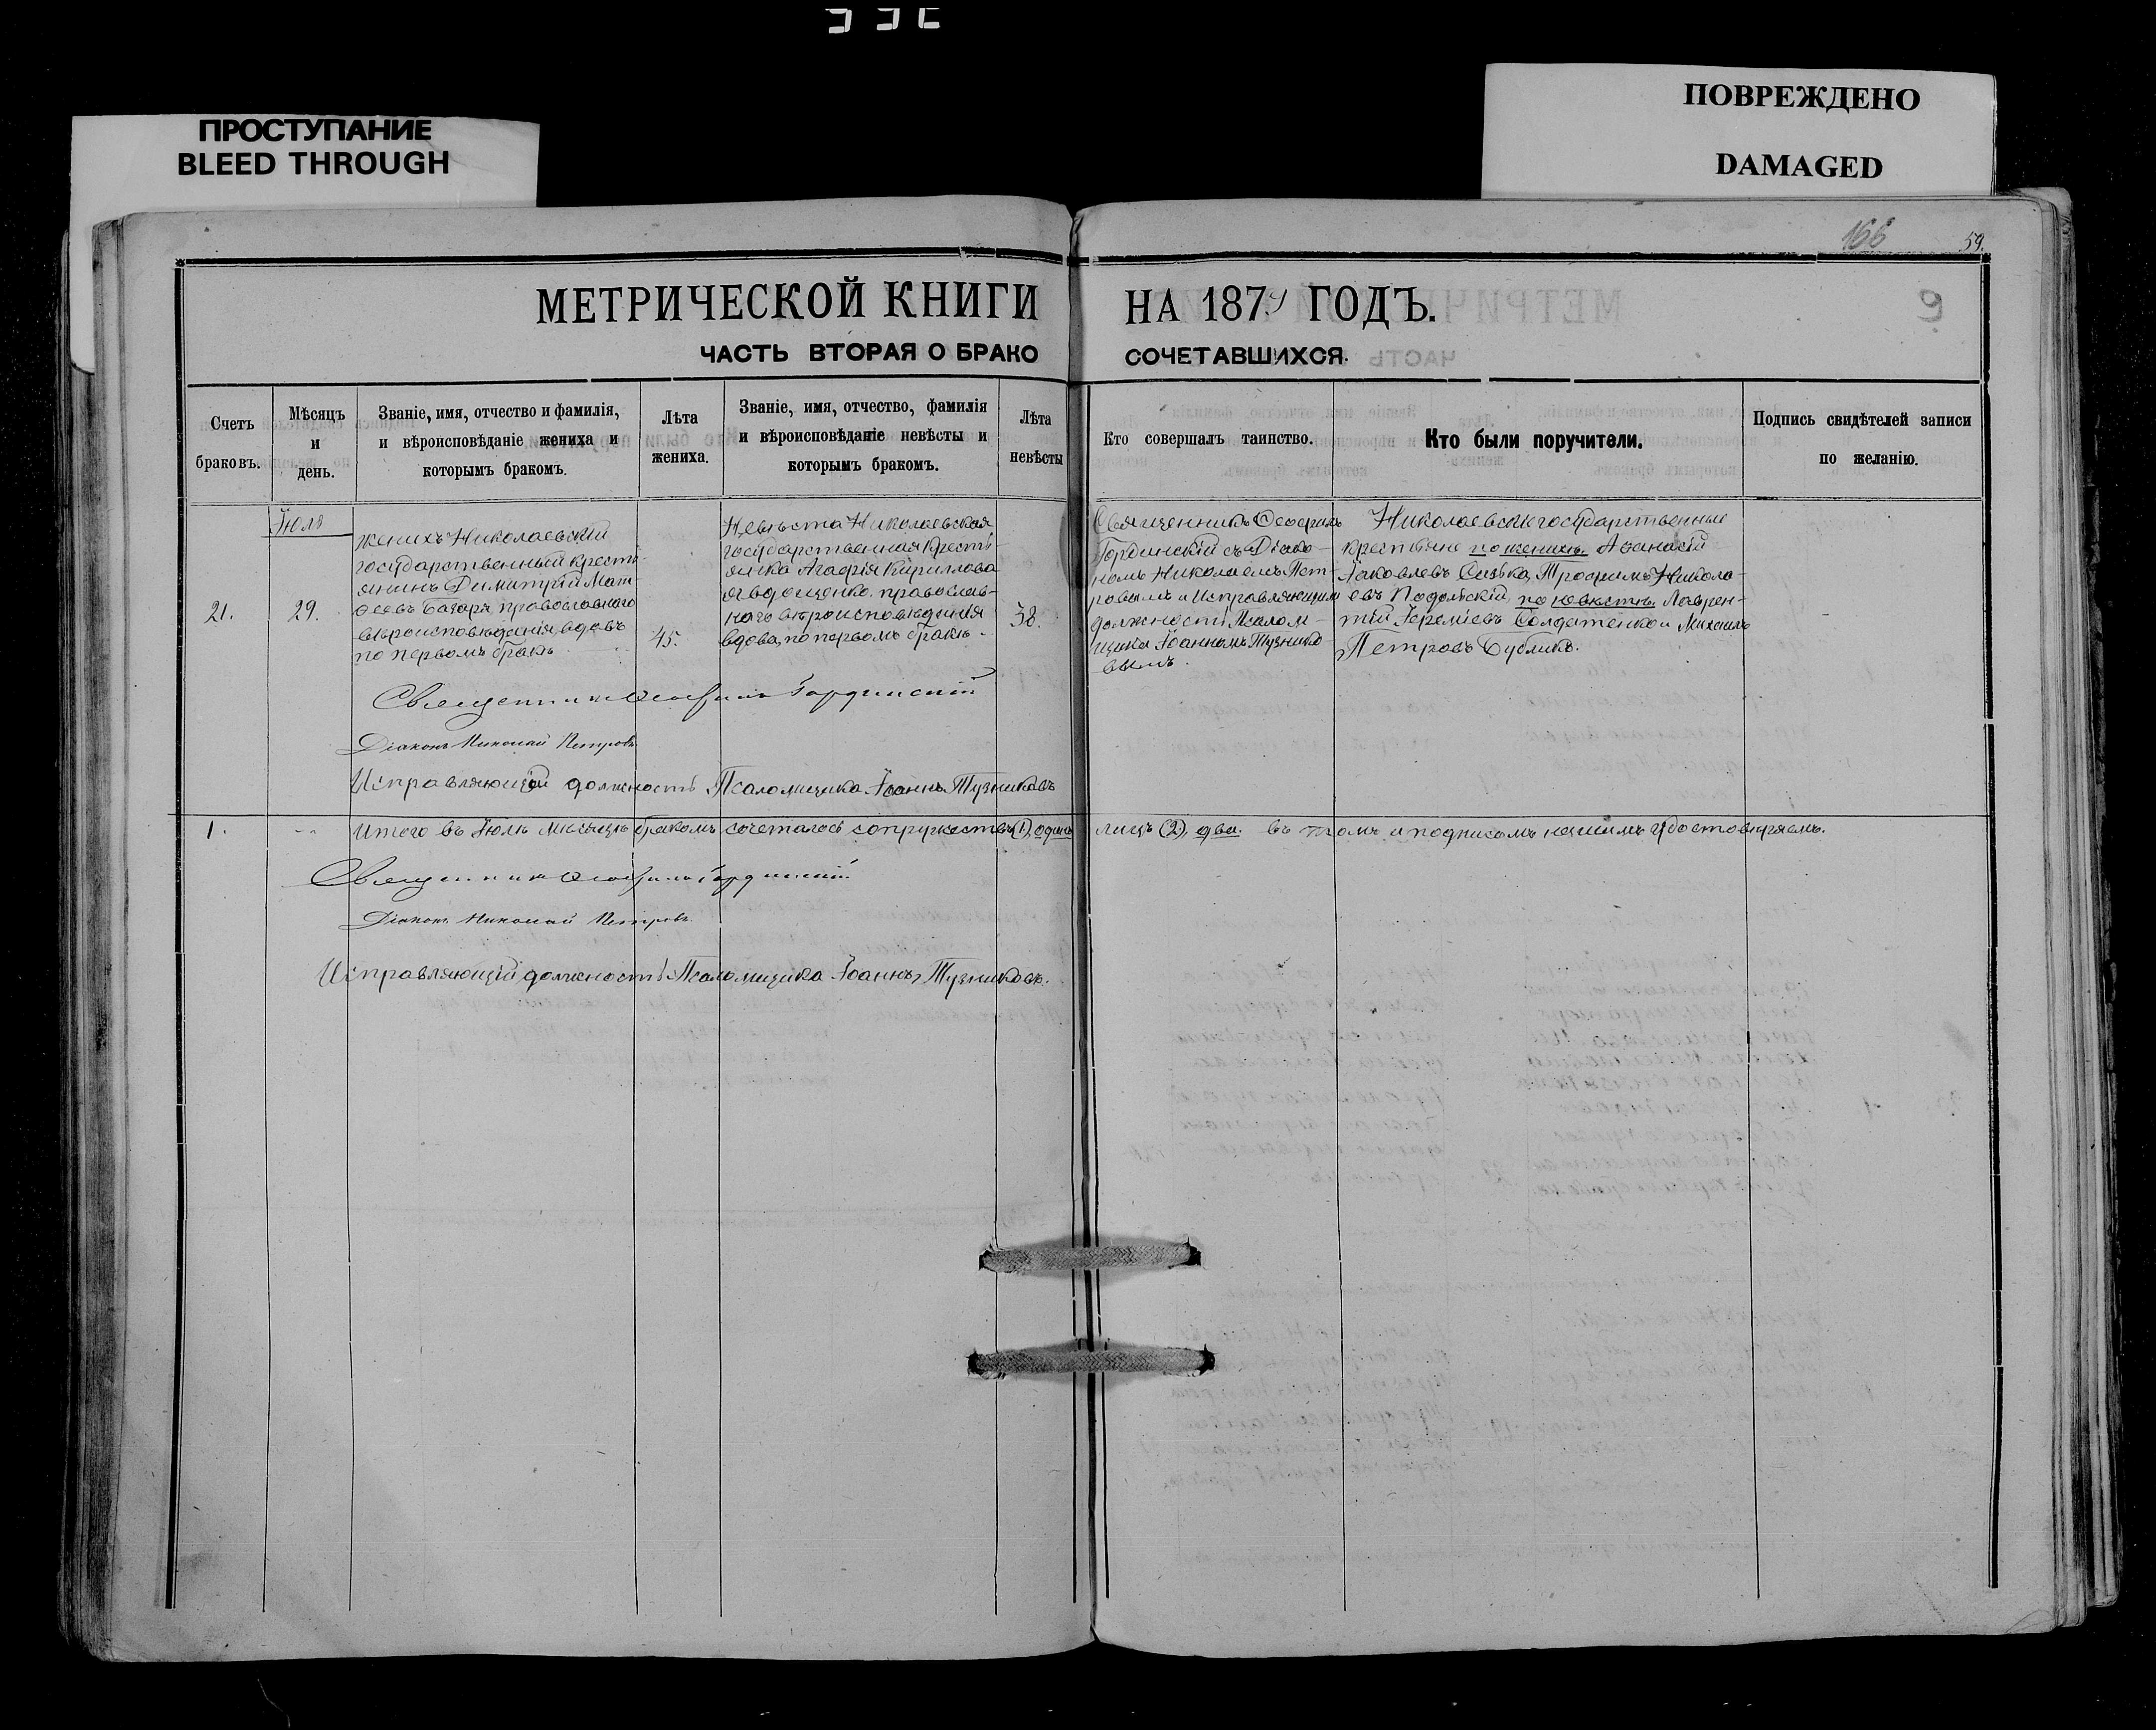 ПРОСТУПАНИЕ
BLEED THROUGH
ПОВРЕЖДЕНО
DAMAGED
166
59.
МЕТРИЧЕСКОЙ КНИГИ НА 187 ГОДЪ.
ЧАСТЬ ВТОРАЯ О БРАКОСОЧЕТАВШИХСЯ.
Счетъ
браковъ.
Мѣсяцъ
и
день.
Званіе, имя, отчество и фамилія,
и вѣроисповѣданіе жениха и
которымъ бракомъ.
Лѣта
жениха.
Званіе, имя, отчество, фамилія
и вѣроисповѣданіе невѣсты и
которымъ бракомъ.
Лѣта
невѣсты
Кто совершалъ таинство.
Кто были поручители.
Подпись свидѣтелей записи
по желанію.
21.
Іюль
29.
женихъ Николаевскій
государственный кресть-
янинъ Димитрій Мат-
ѳеевъ Базаръ православнаго
вѣроисповѣданія, вдовъ
по первомъ бракѣ
45.
Невѣста Николаевская
государственная кресть-
янка Агафія Кириллова
православ-
наго вѣроисповѣданія
вдова, по первомъ бракѣ.
38.
Священникъ Ѳеофилъ
Гординскій съ Діако-
номъ Николаемъ Пет-
ровымъ и Исправляющимъ
должность Псалом-
щика Іоанномъ Тузнико
вымъ.
Николаевскіе государственные
крестьяне по женихѣ. Аѳанасій
Яковлевъ Сизька, Трофимъ Никола-
евъ Подольскій, по невѣстѣ. Лаврен-
тій Іереміевъ Солдатенко и Михаилъ
Петровъ Бубликъ.
Священникъ Ѳеофилъ Гординскій
Діаконъ Николай Петровъ
Исправляющій должность Псаломщика Іоаннъ Тузниковъ
1. Итого въ Іюлѣ мѣсяцѣ бракомъ сочеталось супружествъ (1), одно лицъ (2), два. въ томъ и подписомъ нашимъ удостовѣряемъ.
Священникъ Ѳеофилъ Гординскій
Діаконъ Николай Петровъ.
Исправляющій должность Псаломщика Іоаннъ Тузниковъ.